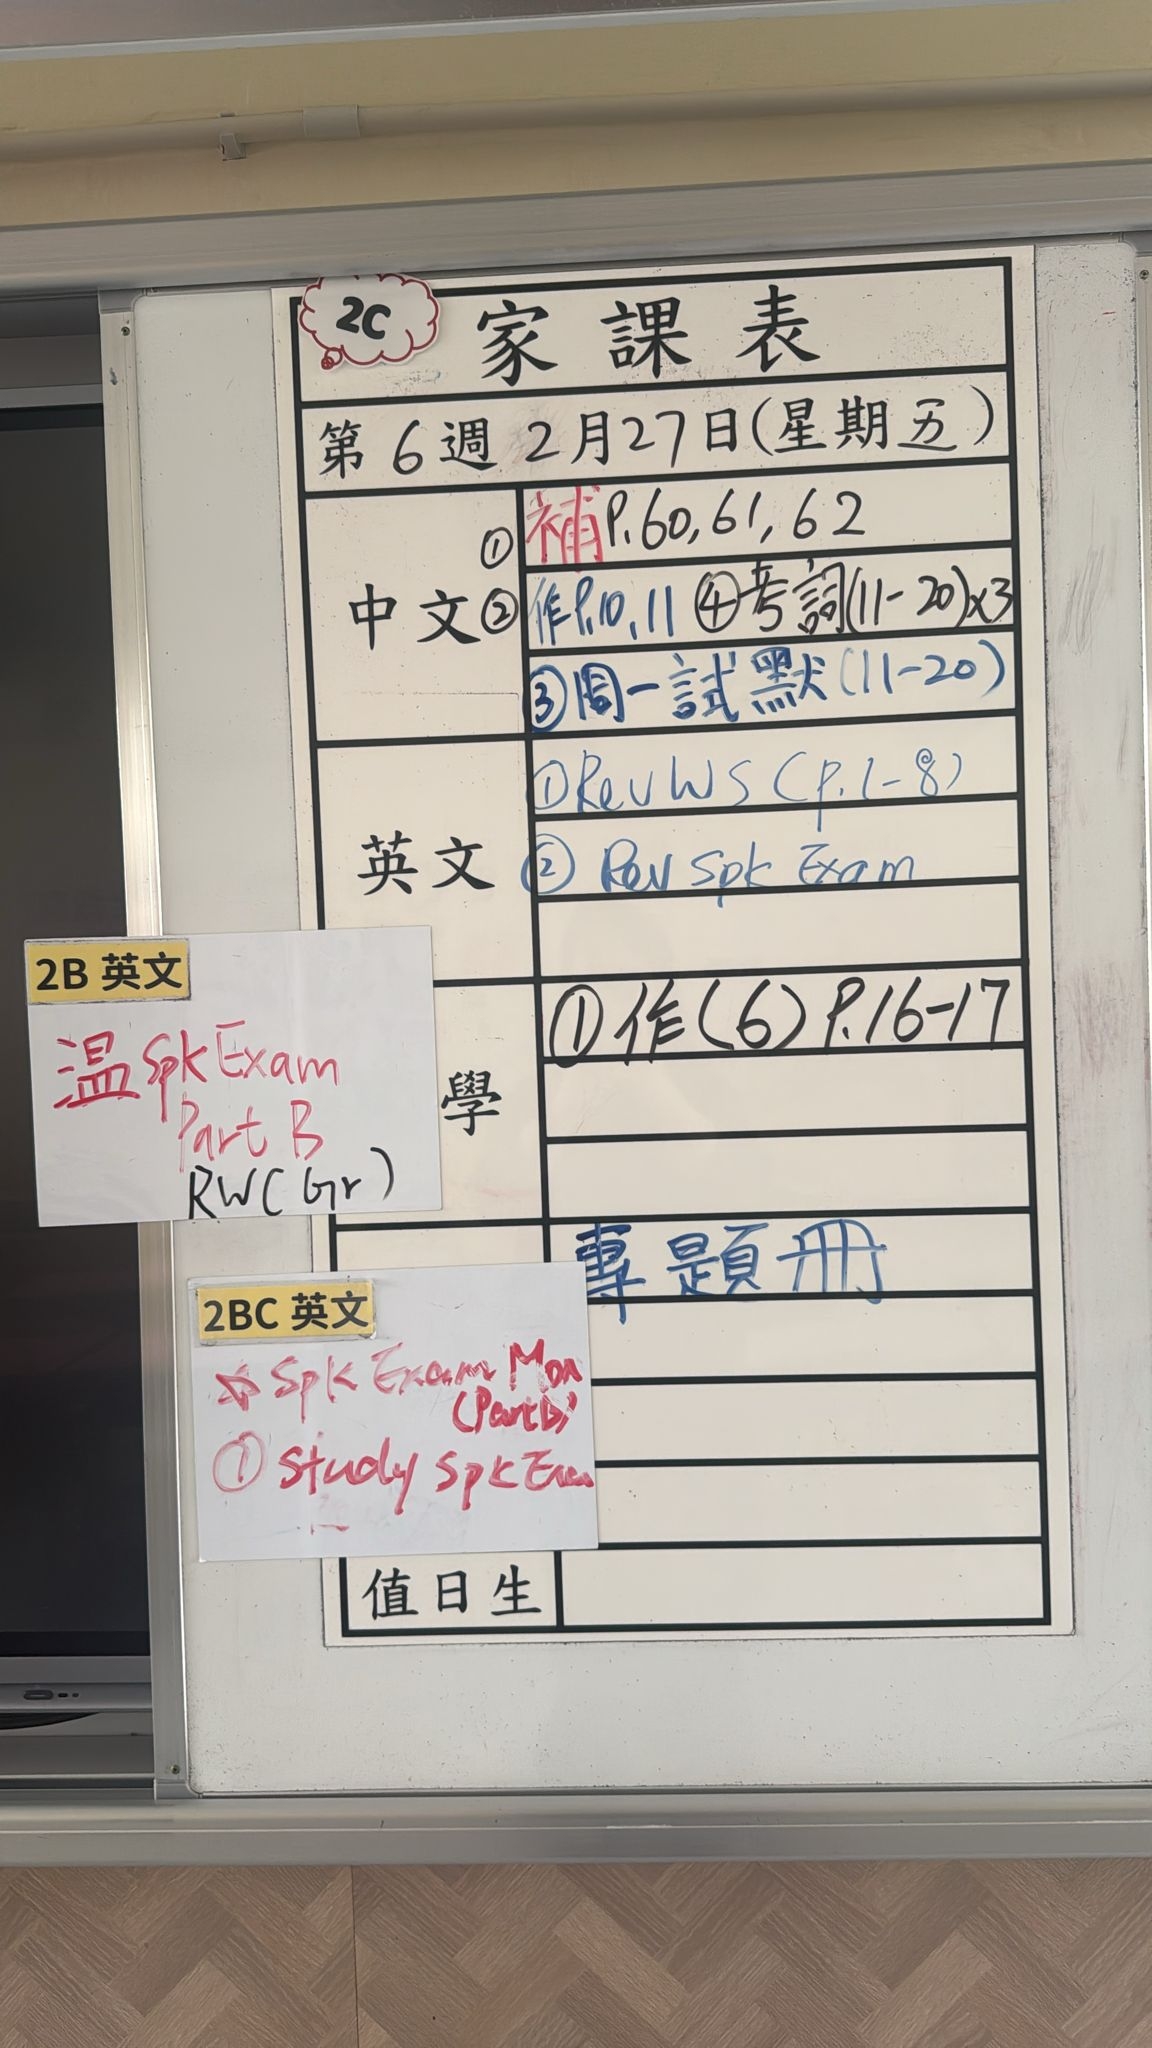 2C
家課表
第6週 2月27日(星期五)
中文
①補P.60,61,62
②作P.10,11 ④考詞(11-20)x3
③周一試默(11-20)
英文
①Rev WS (p.1-8)
② Rev Spk Exam
2B 英文
溫 Spk Exam
Part B
RW(Gr)
學
①作(6)P.16-17
專題冊
2BC 英文
☆ Spk Exam Mon
(Part B)
① Study Spk Exam
值日生